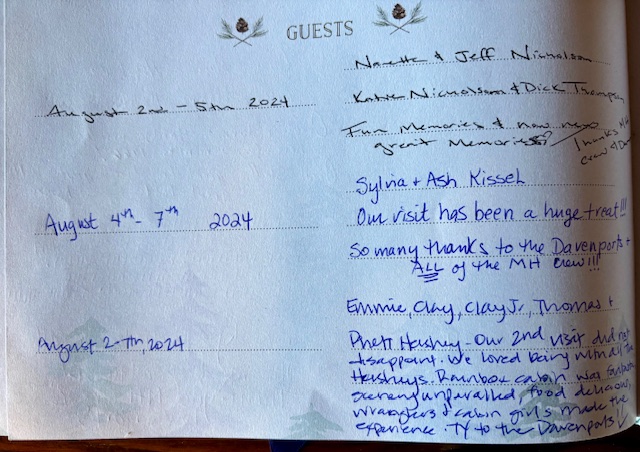 GUESTS
Nanette & Jeff Nicholson
August 2nd - 5th 2024
Katie Nicholson & Dick Thompson
Fun Memories & now new
great Memories Thanks MH
crew &
Sylvia + Ash Kissel
August 4th - 7th 2024
Our visit has been a huge treat!!!
So many thanks to the Davenports +
ALL of the MH crew!!!
Emmie, Clay, Clay Jr, Thomas +
August 2-7th, 2024
Rhett Hashey - Our 2nd visit did not
disappoint. We loved being with all the
Hasheys. Rainbow cabin was fantastic
scenery unparalled, food delicious,
wranglers & cabin girls made the
experience. TY to the Davenports!